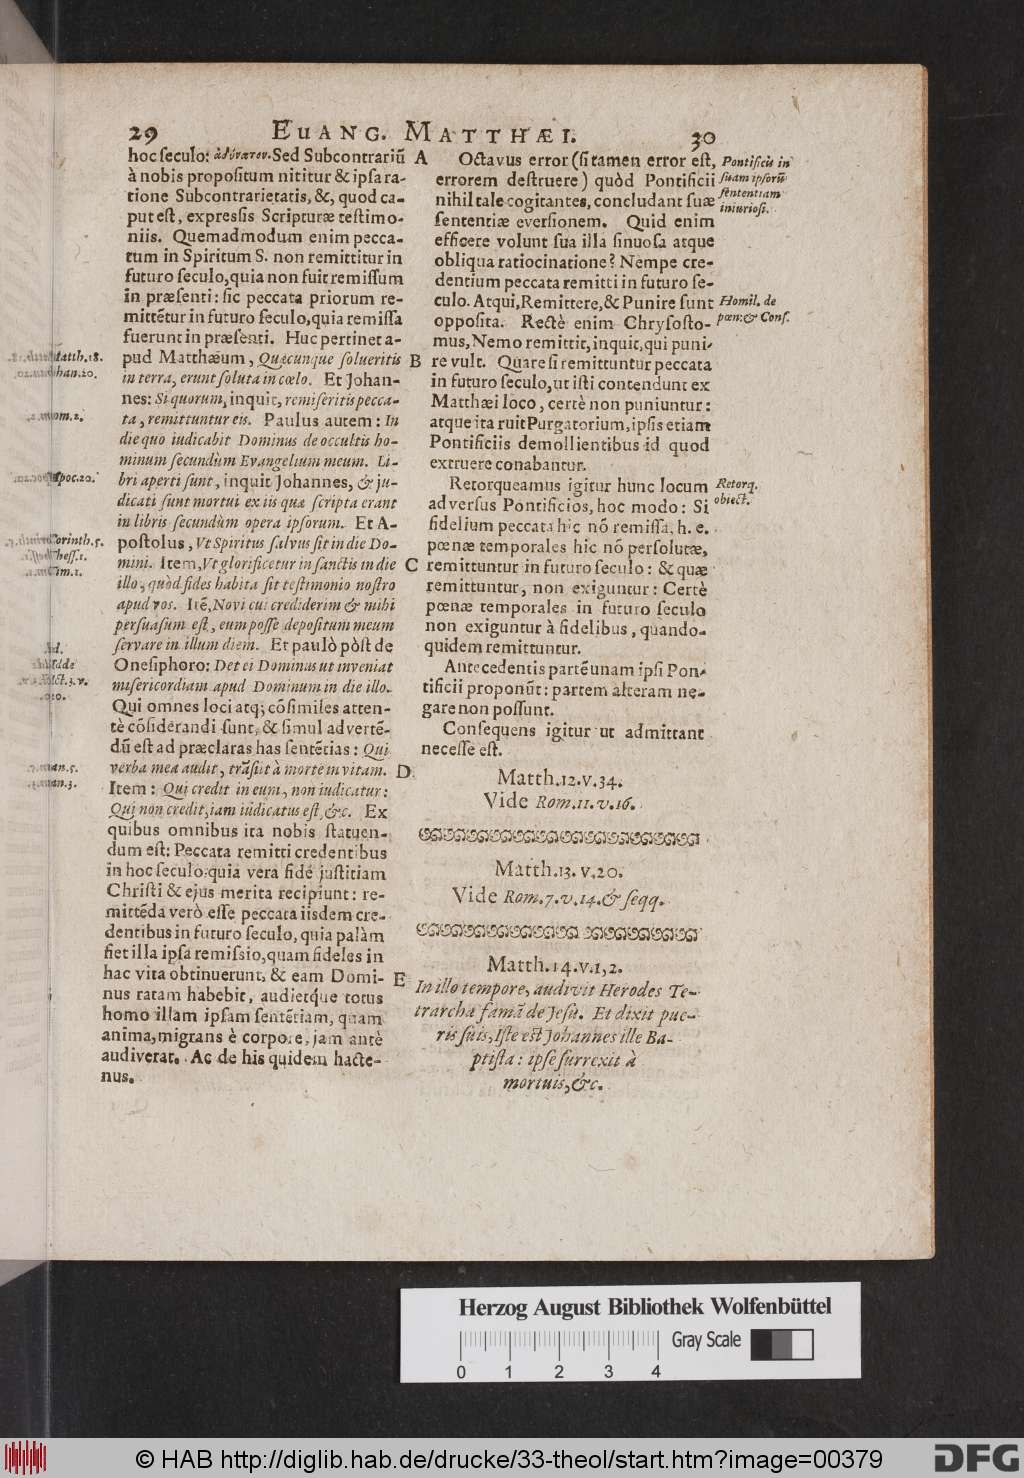 29 EUANG. MATTHÆI. 30
hoc seculo: ἀδύνατον. Sed Subcontrariũ
à nobis propositum nititur & ipsa ra-
tione Subcontrarietatis, &, quod ca-
put est, expressis Scripturæ testimo-
niis. Quemadmodum enim pecca-
tum in Spiritum S. non remittitur in
futuro seculo, quia non fuit remissum
in præsenti: sic peccata priorum re-
mittẽtur in futuro seculo, quia remissa
fuerunt in præsenti. Huc pertinet a-
pud Matthæum, Quæcunque solueritis
in terra, erunt soluta in cœlo. Et Johan-
nes: Si quorum, inquit, remiseritis pecca-
ta, remittuntur eis. Paulus autem: In
die quo iudicabit Dominus de occultis ho-
minum secundùm Evangelium meum. Li-
bri aperti sunt, inquit Johannes, & ju-
dicati sunt mortui ex iis quæ scripta erant
in libris secundùm opera ipsorum. Et A-
postolus, Vt Spiritus salvus sit in die Do-
mini. Item, Vt glorificetur in sanctis in die
illo, quòd fides habita sit testimonio nostro
apud vos. Itẽ, Novi cui crediderim & mihi
persuasum est, eum posse depositum meum
servare in illum diem. Et paulò pòst de
Onesiphoro: Det ei Dominus ut inveniat
misericordiam apud Dominum in die illo.
Qui omnes loci atq; cõsimiles atten-
tè cõsiderandi sunt, & simul advertẽ-
dũ est ad præclaras has sentẽtias: Qui
verba mea audit, trãsiit à morte in vitam.
Item: Qui credit in eum, non iudicatur:
Qui non credit, iam iudicatus est, &c. Ex
quibus omnibus ita nobis statuen-
dum est: Peccata remitti credentibus
in hoc seculo: quia vera fide justitiam
Christi & ejus merita recipiunt: re-
mittẽda verò esse peccata iisdem cre-
dentibus in futuro seculo, quia palàm
fiet illa ipsa remissio, quam fideles in
hac vita obtinuerunt, & eam Domi-
nus ratam habebit, audietque totus
homo illam ipsam sentẽtiam, quam
anima, migrans è corpore, jam antè
audiverat. Ac de his quidem hacte-
nus.
Matth. 18.
Johan. 20.
Rom. 2.
Apoc. 20.
Corinth. 5.
Thess. 1.
Tim. 1.
A
B
C
D
E
Octavus error (si tamen error est,
errorem destruere) quòd Pontificii
nihil tale cogitantes, concludant suæ
sententiæ eversionem. Quid enim
efficere volunt sua illa sinuosa atque
obliqua ratiocinatione? Nempe cre-
dentium peccata remitti in futuro se-
culo. Atqui, Remittere, & Punire sunt
opposita. Rectè enim Chrysosto-
mus, Nemo remittit, inquit, qui puni-
re vult. Quare si remittuntur peccata
in futuro seculo, ut isti contendunt ex
Matthæi loco, certè non puniuntur:
atque ita ruit Purgatorium, ipsis etiam
Pontificiis demollientibus id quod
extruere conabantur.
Retorqueamus igitur hunc locum
adversus Pontificios, hoc modo: Si
fidelium peccata hic nõ remissa, h. e.
pœnæ temporales hic nõ persolutæ,
remittuntur in futuro seculo: & quæ
remittuntur, non exiguntur: Certè
pœnæ temporales in futuro seculo
non exiguntur à fidelibus, quando-
quidem remittuntur.
Antecedentis partẽ unam ipsi Pon-
tificii proponũt: partem alteram ne-
gare non possunt.
Consequens igitur ut admittant
necesse est.
Pontificii in
suam ipsorũ
sententiam
iniuriosi.
Homil. de
pœn. & Conf.
Retorq.
obiect.
Matth. 12. v. 34.
Vide Rom. 11. v. 16.
Matth. 13. v. 20.
Vide Rom. 7. v. 14. & seqq.
Matth. 14. v. 1, 2.
In illo tempore, audivit Herodes Te-
trarcha famã de Jesu. Et dixit pue-
ris suis, Iste est Johannes ille Ba-
ptista: ipse surrexit à
mortuis, &c.
Herzog August Bibliothek Wolfenbüttel
Gray Scale
0 1 2 3 4
© HAB http://diglib.hab.de/drucke/33-theol/start.htm?image=00379
DFG